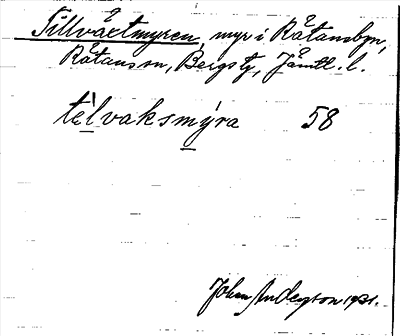 Tillväxtmyren, myr i Råtansbyn,
Råtans sn, Bergs tg, Jämtl. l.
telvaksmýra 58
Johan Anderson 1931.